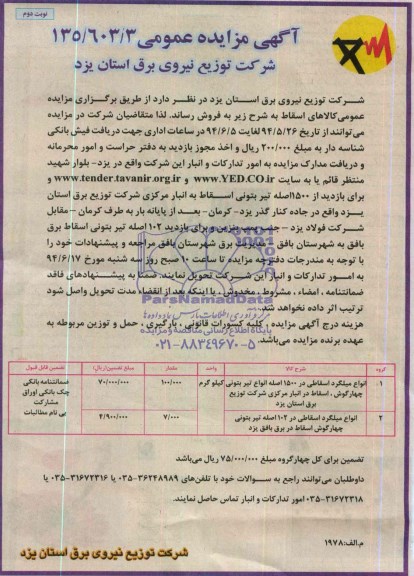 نوبت دوم
آگهی مزایده عمومی ۱۳۵/۶۰۳/۳
شرکت توزیع نیروی برق استان یزد
شرکت توزیع نیروی برق استان یزد در نظر دارد از طریق برگزاری مزایده
عمومی کالاهای اسقاط به شرح زیر به فروش رساند. لذا متقاضیان شرکت در مزایده
می‌توانند از تاریخ ۹۴/۵/۲۶ لغایت ۹۴/۶/۵ در ساعات اداری جهت دریافت فیش بانکی
شناسه دار به مبلغ ۲۰۰/۰۰۰ ریال و اخذ مجوز بازدید به دفتر حراست و امور محرمانه
و دریافت مدارک مزایده به امور تدارکات و انبار این شرکت واقع در یزد- بلوار شهید
منتظر قائم یا به سایت www.YED.CO.ir و www.tender.tavanir.org.ir و
برای بازدید از ۱۵۰۰اصله تیر بتونی اسقاط به انبار مرکزی شرکت توزیع برق استان
یزد واقع در جاده کنار گذر یزد- کرمان- بعد از پایانه بار به طرف کرمان – مقابل
شرکت فولاد یزد – جنب پمپ بنزین و برای بازدید ۱۰۲ اصله تیر بتونی اسقاط برق
بافق به شهرستان بافق – مدیریت برق شهرستان بافق مراجعه و پیشنهادات خود را
با توجه به مندرجات دفترچه مزایده تا ساعت ۱۰ صبح روز سه شنبه مورخ ۹۴/۶/۱۷
به امور تدارکات و انبار این شرکت تحویل نمایند. ضمنا به پیشنهادهای فاقد
ضمانتنامه ، امضاء ، مشروط ، مخدوش ، یا اینکه بعد از انقضاء مدت تحویل واصل شود
ترتیب اثر داده نخواهد شد.
هزینه درج آگهی مزایده ، کلیه کسورات قانونی ، بارگیری ، حمل و توزین مربوطه به
عهده برنده مزایده می‌باشد.
ParsNamadData
پایگاه اطلاع رسانی مناقصه و مزایده
۰۲۱-۸۸۳۴۹۶۷۰-۵
گروه شرح کالا واحد مقدار مبلغ تضمین(ریال) تضمین قابل قبول
۱ انواع میلگرد اسقاطی در ۱۵۰۰ اصله انواع تیر بتونی چهارگوش ، اسقاط در انبار مرکزی شرکت توزیع برق استان یزد کیلو گرم ۱۰۰/۰۰۰ ۷۰/۰۰۰/۰۰۰ ضمانتنامه بانکی چک بانکی اوراق مشارکت بی نام مطالبات
۲ انواع میلگرد اسقاطی در ۱۰۲ اصله تیر بتونی چهارگوش اسقاط در برق بافق یزد ۷/۰۰۰ ۴/۹۰۰/۰۰۰
تضمین برای کل چهارگروه مبلغ ۷۵/۰۰۰/۰۰۰ ریال می‌باشد
داوطلبان می‌توانند راجع به سوالات خود با تلفن‌های ۳۶۲۴۸۹۸۹-۰۳۵ یا ۳۱۶۷۲۳۱۶-۰۳۵ یا
۳۱۶۷۲۳۱۸-۰۳۵ امور تدارکات و انبار تماس حاصل نمایند.
م.الف:۱۹۷۸
شرکت توزیع نیروی برق استان یزد